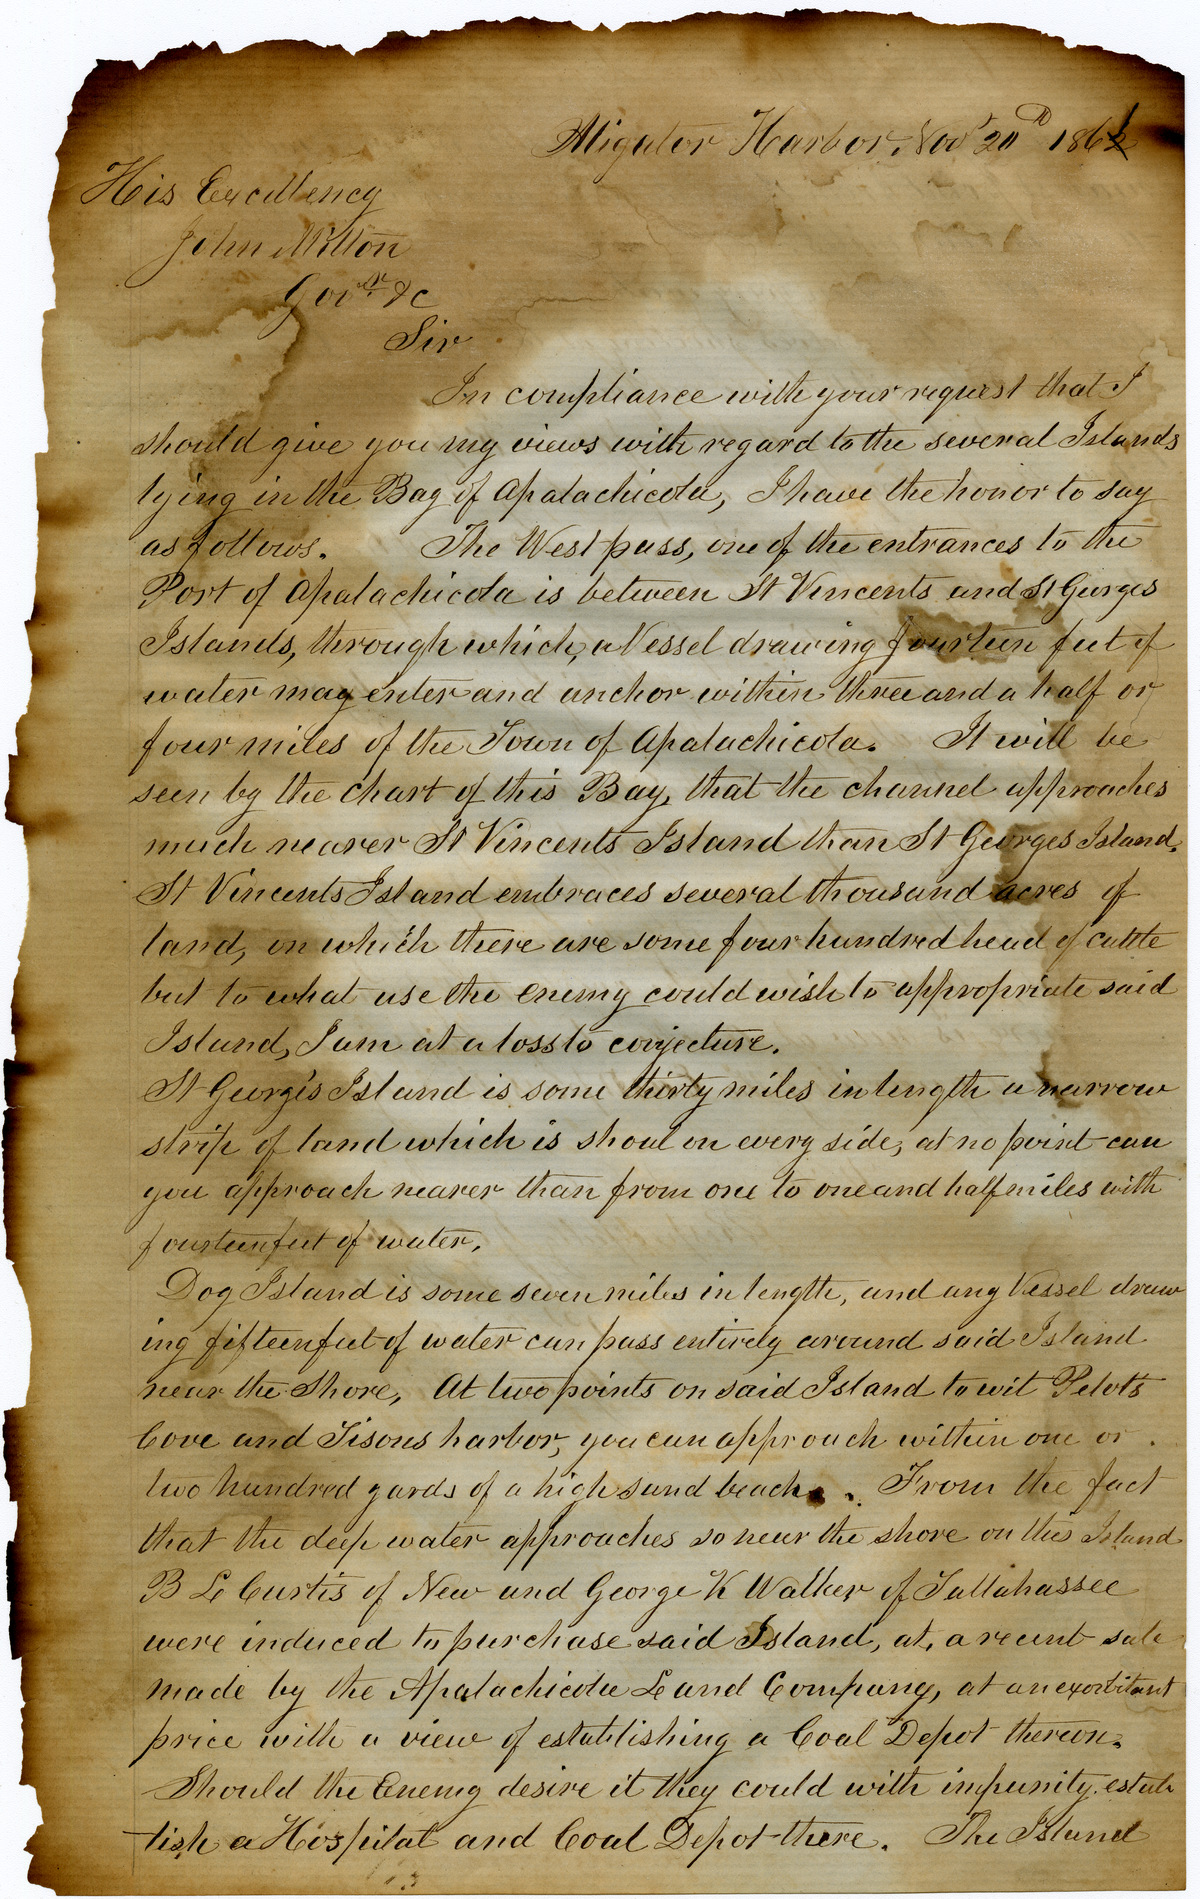 Aligator Harbor, Nov 20th 1861
His Excellency
John Milton
Govr &c
Sir
In compliance with your request that I
should give you my views with regard to the several Islands
lying in the Bay of Apalachicola, I have the honor to say
as follows. The West pass, one of the entrances to the
Port of Apalachicola is between St Vincents and St Georges
Islands, through which, a Vessel drawing fourteen feet of
water may enter and anchor within three and a half or
four miles of the Town of Apalachicola. It will be
seen by the chart of this Bay, that the channel approaches
much nearer St Vincents Island than St Georges Island.
St Vincents Island embraces several thousand acres of
land, on which there are some four hundred head of cattle
but to what use the enemy could wish to appropriate said
Island, I am at a loss to conjecture.
St George's Island is some thirty miles in length a narrow
strip of land which is shoal on every side, at no point can
you approach nearer than from one to one and half miles with
fourteen feet of water.
Dog Island is some seven miles in length, and any Vessel draw
ing fifteen feet of water can pass entirely around said Island
near the Shore, At two points on said Island to wit Pelots
Cove and Tisons harbor, you can approach within one or
two hundred yards of a high sand beach. From the fact
that the deep water approaches so near the shore on this Island
B L Curtis of New and George K Walker of Tallahassee
were induced to purchase said Island, at, a recent sale
made by the Apalachicola Land Company, at an exorbitant
price with a view of establishing a Coal Depot thereon.
Should the Enemy desire it they could with impunity estab
lish a Hospital and Coal Depot there. The Island